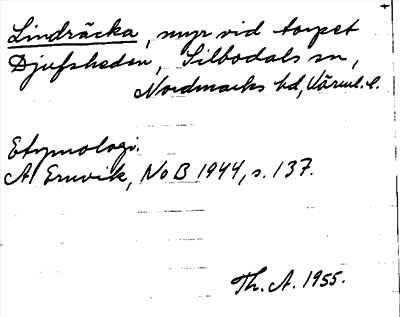 Lindräcka, myr vid torpet
Djufsheden, Silbodals sn,
Nordmarks hd, Värml. l.
Etymologi.
A Ernvik, NoB 1944, s. 137.
Th. A. 1955.